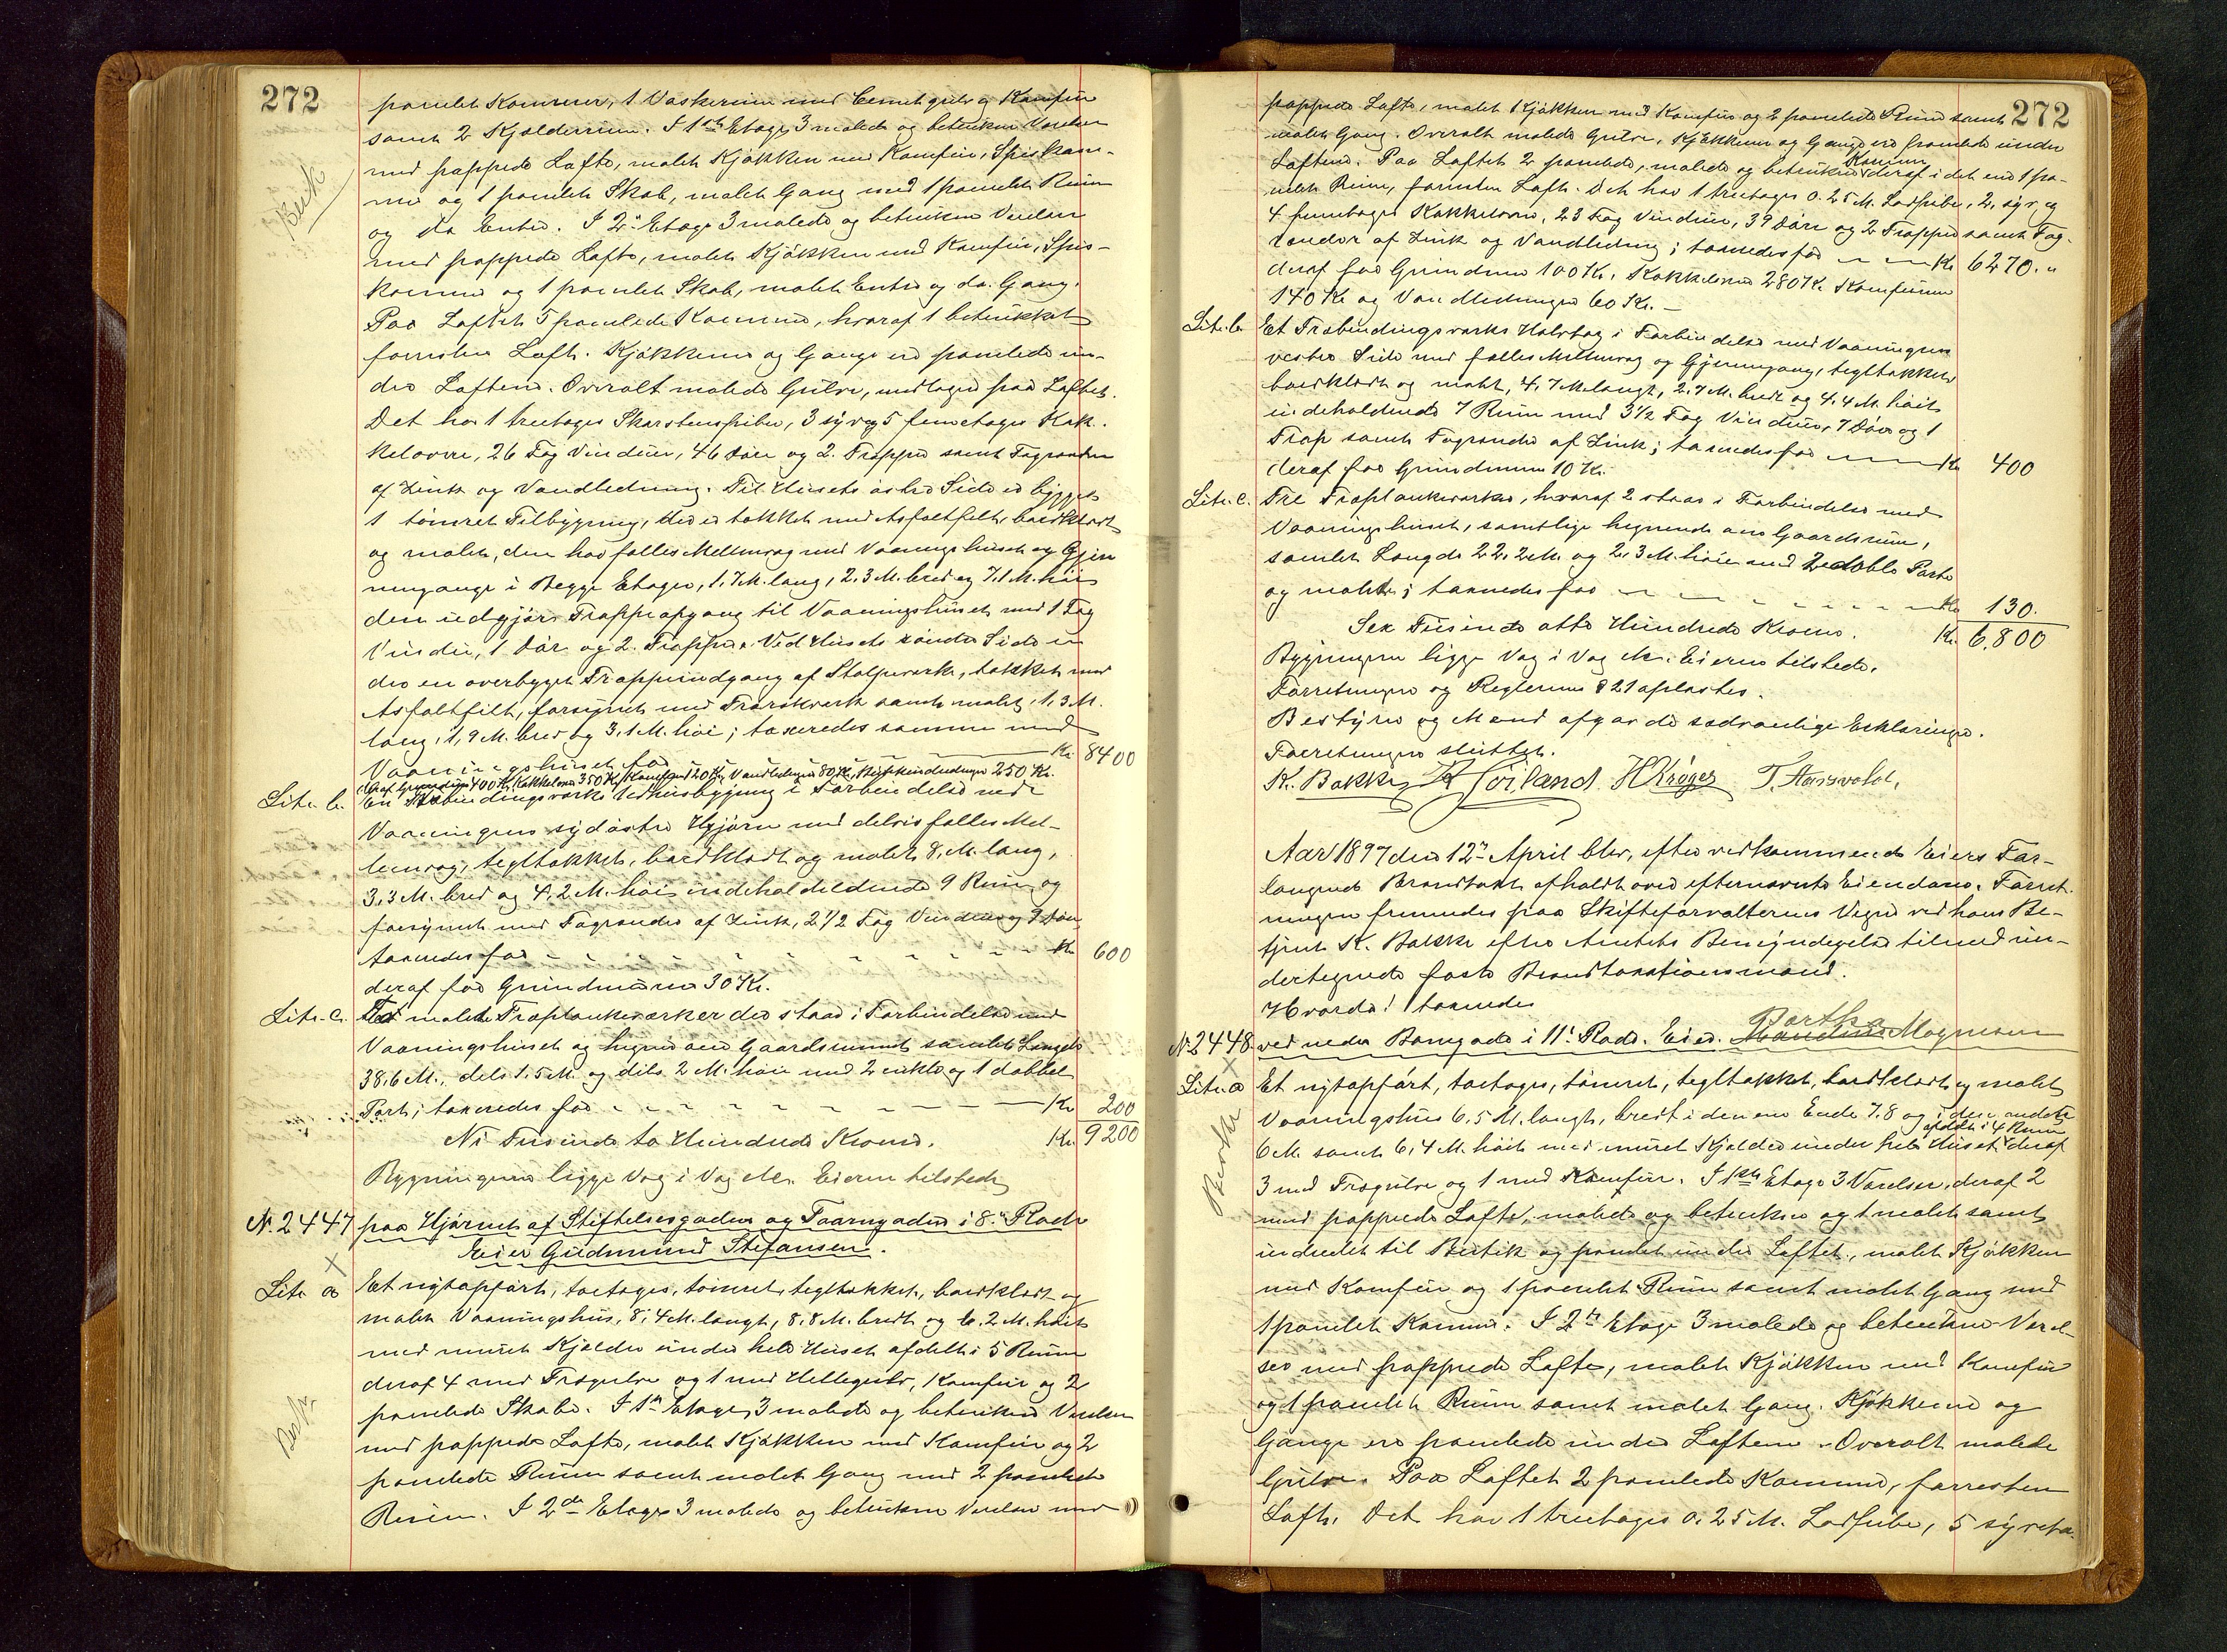 272
panelet Kammer, 1 Vaskerum med Cementgulv og Komfur
samt 2 Kjælderrum. I 1ste Etage 3 malede og betrukne Værelser
med pappede Lofte, malet Kjøkken med Komfur, Spiskam-
mer og 1 panelet Skab, malet Gang med 1 panelet Rum
og do Entré. I 2n Etage 3 malede og betrukne Værelser
med pappede Lofte, malet Kjøkken med Komfur, Spis-
kammer og 1 panelet Skab, malet Entré og do. Gang.
Paa Loftet 5 panelede Kammer, hvoraf 1 betrukket
forresten Loft. Kjøkkene og Gange er panelede un-
der Loftene. Overalt malede Gulve, undtagen paa Loftet.
Det har 1 treetages Skorstenspibe, 3 syv og 5 femetages Kak-
kelovne, 26 Fag Vinduer, 46 Døre og 2. Trapper samt Tagrender
af Zink og Vandledning. Til Husets østre Side er bygget
1 tømret Tilbygning, der er tækket med Asfaltfilt, bordklædt
og malet, den har fælles Mellemvæg med Vaaningshuset og Gjen-
nemgange i Begge Etager, 1,7 M. lang, 2,3 M. bred og 7,1 M. høi
den udgjør Trappeopgang til Vaaningshuset med 1 Fag
Vindu, 1 Dør og 2. Trapper. Ved Husets søndre Side er
der en overbygget Trappeindgang af Stolpeværk, tækket med
Asfaltfilt, forsynet med Træværk samt malet, 1,3 M.
lang, 1,9 M. bred og 3,1 M. høi; taxeredes sammen med
Vaaningshuset for Kr. 8400
deraf Grundmur 400 Kr, Kakkelovne 350 Kr, Komfurer 120 Kr, Vandledningen 80 Kr, 250 Kr.
Litr. b. En Træbindingsværks Udhusbygning i Forbindelse med
Vaaningens sydøstre Hjørne med delvis fælles Mel-
lemvæg, tegltækket, bordklædt og malet, 8, M. lang,
3,3 M. bred og 4,2 M. høi indeholdeldende 9 Rum og
forsynet med Tagrender af Zink, 2 1/2 Fag Vinduer og 9 Døre
taxeredes for Kr 600
deraf for Grundmuren 30 Kr.
Litr. c. malede Træplankeværker der staar i Forbindelse med
Vaaningshuset og hegner om Gaardsrummet samlet Længde
38,6 M., dels 1,5 M. og dels 2 M. høie med 2 enkle og 1 dobbel
Port; taxeredes for Kr 200
Ni Tusinde to Hundrede Kroner. Kr. 9200
Bygningerne ligge Væg i Væg etc. Eieren tilstede
N. 2447 paa Hjørnet af Stiftelsesgaden og Taarngaden i 8de Rode
Eier Gudmund Stefansen.
Litr a Et nyt opført, toetages, tømret, tegltækket, bordklædt og
malet Vaaningshus, 8,4 M. langt, 8,8 M. bredt og 6,2 M. høit
med muret Kjælder under hele Huset afdelt i 5 Rum
deraf 4 med Trægulve og 1 med Hellegulv, Komfur og 2
panelede Skabe. I 1n Etage, 3 malede og betrukne Værelser
med pappede Lofte, malet Kjøkken med Komfur og 2
panelede Rum samt malet Gang med 2 panelede
Rum. I 2den Etage 3 malede og betrukne Værelser med
272
pappede Lofte, malet Kjøkken med Komfur og 2 panelede Rum samt
malet Gang. Overalt malede Gulve, Kjøkkene og Gange er panelede under
Loftene. Paa Loftet 2 panelede, malede og betrukne Kammer deraf i det ene 1 pa-
nelet Rum, forresten Loft. Det har 1 treetages 0.25 M. Lodpibe, 2 syv og
4 femetages Kakkelovne, 23 Fag Vinduer, 39 Døre og 2 Trapper samt Tag-
render af Zink og Vandledning; taxeredes for Kr 6270. "
deraf for Grundmur 100 Kr. Kakkelovne 280 Kr. Komfurene
140 Kr og Vandledningen 60 Kr. —
Litr. b. Et Træbindingsværks Halvtag i Forbindelse med Vaaningens
vestre Side med fælles Mellemvæg og Gjennemgang, tegltækket
bordklædt og malet, 4,7 M. langt, 2,7 M. bredt og 4,4 M. høit
indeholdende 7 Rum med 3 1/2 Fag Vinduer, 7 Døre og 1
Trap samt Tagrender af Zink; taxeredes for Kr 400
deraf for Grundmuren 10 Kr.
Litr. c. Tre Træplankeværker, hvoraf 2 staar i Forbindelse med
Vaaningshuset, samtlige hegnende om Gaardsrum,
samlet Længde 22,2 M. og 2,3 M. høie med 2 dobble Porte
og malede; taxeredes for Kr 130.
Sex Tusinde otte Hundrede Kroner. Kr. 6,800
Bygningerne ligge Væg i Væg etc. Eieren tilstede.
Forretningen og Reglernes § 21 oplæstes.
Bestyrer og Mænd afgav de sædvanlige Erklæringer.
Forretningen sluttet.
K. Bakke H. Kröger T. Aarsvold.
Aar 1897 den 12te April blev, efter vedkommende Eiers For-
langende Brandtaxt afholdt over efternævnte Eiendom. Forret-
ningen fremmedes paa Skifteforvalterens Vegne ved hans Be-
tjent K. Bakke efter Amtets Bemyndigelse tilmed un-
dertegnede faste Brandtaxationsmænd.
Hvorda! taxeredes
Bertha
N. 2448 ved nedre Banegade i 11te Rode. Eier. Magnesen
Litr. a Et nyt opført, toetages, tømret, tegltækket, bordklædt og malet
Vaaningshus 6,5 M. langt, bredt i den ene Ende 7.8 og i den anden
6 M. samt 6,4 M. høit med muret Kjælder under hele Huset afdelt i 4 Rum deraf
3 med Trægulve og 1 med Komfur. I 1ste Etage 3 Værelser, deraf 2
med pappede Lofte, malede og betrukne og 1 malet samt
indredet til Butik og panelet under Loftet, malet Kjøkken
med Komfur og 1 panelet Rum samt malet Gang med
1 panelet Kammer. I 2den Etage 3 malede og betrukne Værel-
ser med pappede Lofte, malet Kjøkken med Komfur
og 1 panelet Rum samt malet Gang. Kjøkkene og
Gange ere panelede under Loftene. Overalt malede
Gulve. Paa Loftet 2 panelede Kammer, forresten
Loft. Det har 1 treetages 0.25 M. Lodpibe, 5 syveta-